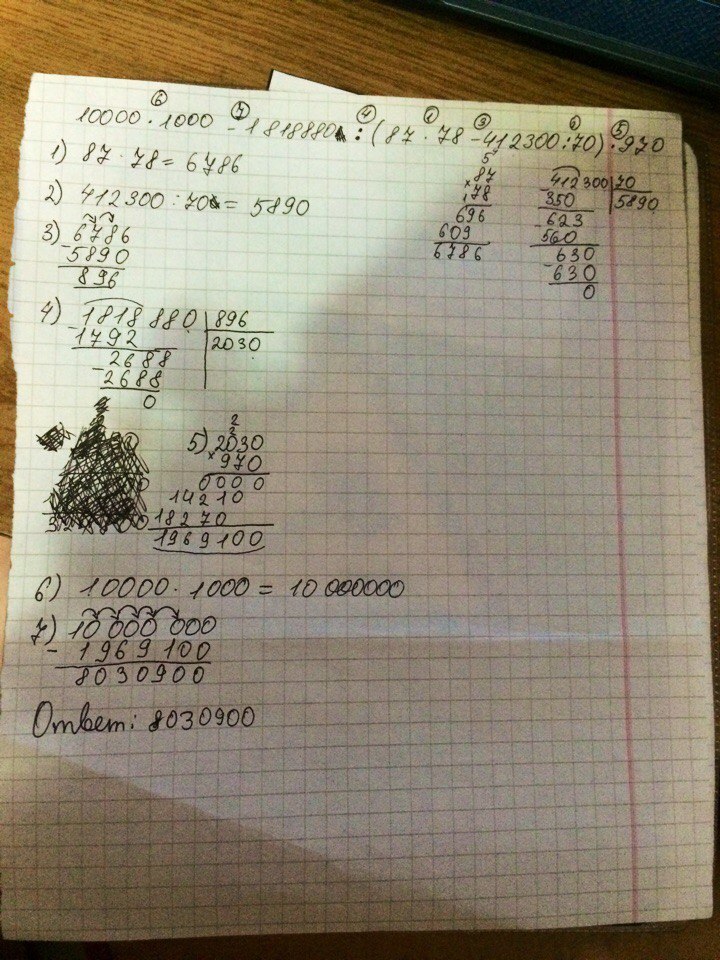 10000 · 1000 - 1818880 : (87 · 78 - 412300 : 70) · 970
1) 87 · 78 = 6786
2) 412300 : 70 = 5890
5
87
× 78
696
609
6786
412300 | 70
- 350 | 5890
623
- 560
630
- 630
0
3) 6786
- 5890
896
4) 1818880 | 896
- 1792 | 2030
2688
- 2688
0
2
2
5) 2030
× 970
0000
14210
18270
1969100
6) 10000 · 1000 = 10000000
7) 10 000 000
- 1 969 100
8030900
Ответ: 8030900